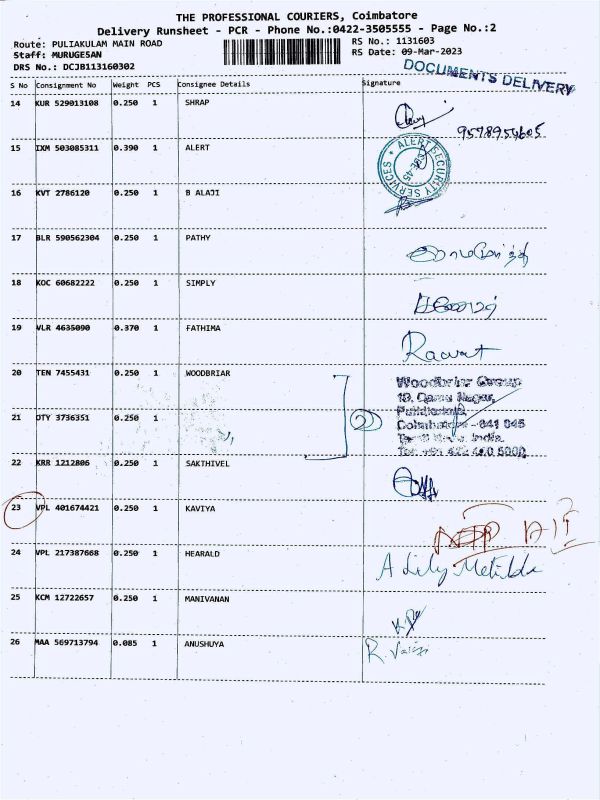 THE PROFESSIONAL COURIERS, Coimbatore
Delivery Runsheet - PCR - Phone No.:0422-3505555 - Page No.:2
Route: PULIAKULAM MAIN ROAD
RS No.: 1131603
Staff: MURUGESAN
RS Date: 09-Mar-2023
DRS No.: DCJB113160302
DOCUMENTS DELIVERY
S No Consignment No Weight PCS Consignee Details Signature
14 KUR 529013108 0.250 1 SHRAP
9578954605
15 IXM 503085311 0.390 1 ALERT
ALERT SECURITY SERVICES
16 KVT 2786120 0.250 1 B ALAJI
17 BLR 590562304 0.250 1 PATHY
18 KOC 60682222 0.250 1 SIMPLY
19 VLR 4635090 0.370 1 FATHIMA
20 TEN 7455431 0.250 1 WOODBRIAR
Woodbriar Group
21 DTY 3736351 0.250 1
Coimbatore - 641 045
Tamil Nadu, India.
22 KRR 1212806 0.250 1 SAKTHIVEL
23 VPL 401674421 0.250 1 KAVIYA
24 VPL 217387668 0.250 1 HEARALD
A Lily Metilda
25 KCM 12722657 0.250 1 MANIVANAN
26 MAA 569713794 0.085 1 ANUSHUYA